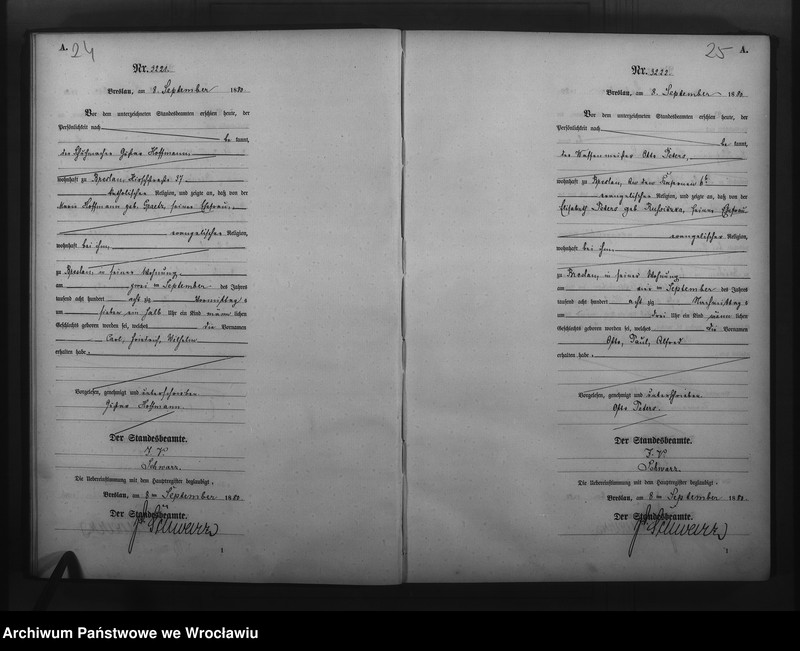 A. 24
Nr. 3221.
Breslau, am 8. September 1880
Vor dem unterzeichneten Standesbeamten erschien heute, der
Persönlichkeit nach
be kannt,
der Schuhmacher Gustav Hoffmann
wohnhaft zu Breslau, 27
katholischer Religion, und zeigte an, daß von der
Marie Hoffmann geb. seiner Ehefrau
evangelischer Religion,
wohnhaft bei ihm,
zu Breslau, in seiner Wohnung
am zwei ten September des Jahres
tausend acht hundert acht zig Vormittag s
um sieben ein halb Uhr ein Kind männ lichen
Geschlechts geboren worden sei, welches die Vornamen
Carl, Heinrich, Wilhelm
erhalten habe.
Vorgelesen, genehmigt und unterschrieben
Gustav Hoffmann.
Der Standesbeamte.
J. V.
Schwarz.
Die Uebereinstimmung mit dem Hauptregister beglaubigt.
Breslau, am 8 ten September 1880
Der Standesbeamte.
Schwarz
1
25 A.
Nr. 3222.
Breslau, am 8. September 1880
Vor dem unterzeichneten Standesbeamten erschien heute, der
Persönlichkeit nach
be kannt,
der Waffenmeister Otto Peters,
wohnhaft zu Breslau, An den Kasernen
evangelischer Religion, und zeigte an, daß von der
Elisabeth Peters geb. seiner Ehefrau
evangelischer Religion,
wohnhaft bei ihm
zu Breslau, in seiner Wohnung
am ten September des Jahres
tausend acht hundert acht zig Nachmittag s
um drei Uhr ein Kind männ lichen
Geschlechts geboren worden sei, welches die Vornamen
Otto, Paul, Alfred
erhalten habe.
Vorgelesen, genehmigt und unterschrieben
Otto Peters.
Der Standesbeamte.
J. V.
Schwarz.
Die Uebereinstimmung mit dem Hauptregister beglaubigt.
Breslau, am 8 ten September 1880
Der Standesbeamte.
Schwarz
1
Archiwum Państwowe we Wrocławiu